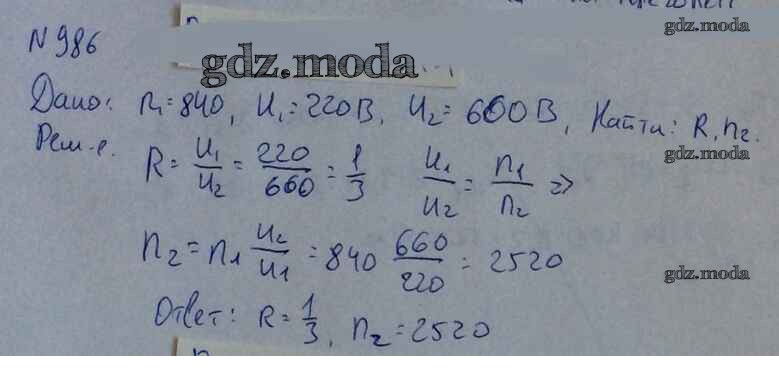 gdz.moda
N 986
gdz.moda
Дано: n₁=840, U₁=220В, U₂=660В, Найти: R, n₂.
Реш-е.
gdz.moda
R = U₁/U₂ = 220/660 = 1/3 U₁/U₂ = n₁/n₂ ⇒
n₂ = n₁ U₂/U₁ = 840 660/220 = 2520
gdz.moda
Ответ: R = 1/3, n₂ = 2520